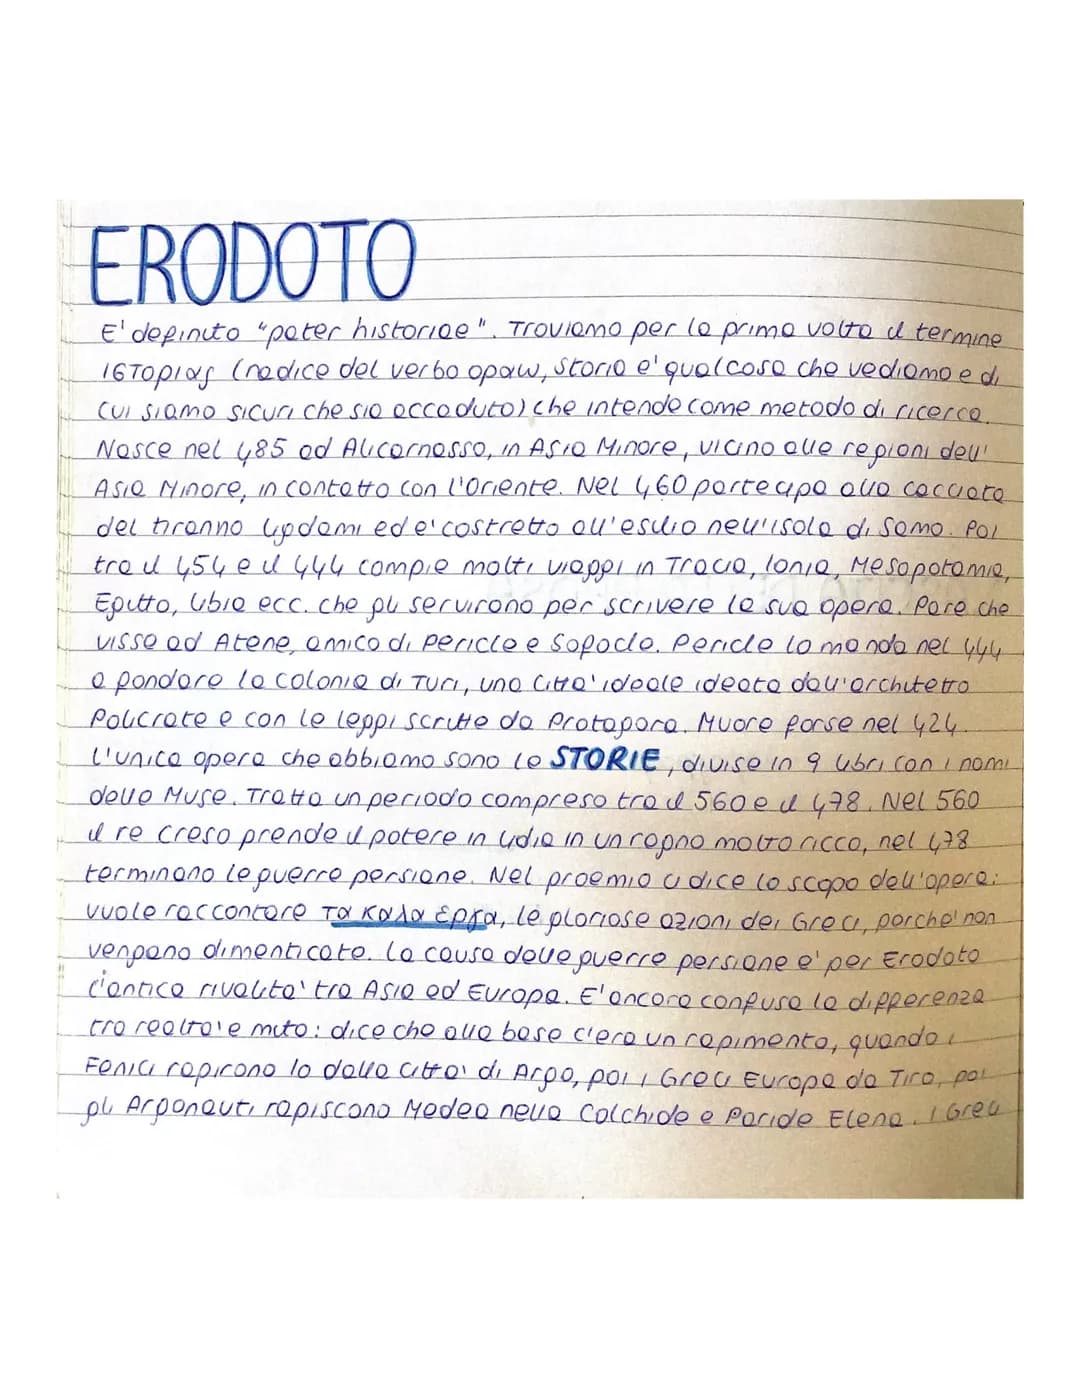 ERODOTO
E' definito "pater historiae". Troviamo per la prima volta il termine
ιστορίας (radice del verbo οραω, storia e' qualcosa che vediamo e di
cui siamo sicuri che sia accaduto) che intende come metodo di ricerca.
Nasce nel 485 ad Alicarnasso, in Asia Minore, vicino alle regioni dell'
Asia Minore, in contatto con l'Oriente. Nel 460 partecipa alla cacciata
del tiranno Ligdami ed e' costretto all'esilio nell'isola di Samo. Poi
tra il 454 e il 444 compie molti viaggi in Tracia, Ionia, Mesopotamia,
Egitto, Libia ecc. che gli servirono per scrivere la sua opera. Pare che
visse ad Atene, amico di Pericle e Sofocle. Pericle lo manda nel 444
a fondare la colonia di Turi, una citta' ideale ideata dall'architetto
Policrate e con le leggi scritte da Protagora. Muore forse nel 424.
L'unica opera che abbiamo sono le STORIE, divise in 9 libri con i nomi
delle Muse. Tratta un periodo compreso tra il 560 e il 478. Nel 560
il re Creso prende il potere in Lidia in un regno molto ricco, nel 478
terminano le guerre persiane. Nel proemio ci dice lo scopo dell'opera:
vuole raccontare τα καλα έργα, le gloriose azioni dei Greci, perche' non
vengano dimenticate. La causa delle guerre persiane e' per Erodoto
l'antica rivalita' tra Asia ed Europa. E' ancora confusa la differenza
tra realta' e mito: dice che alla base c'era un rapimento, quando i
Fenici rapirono Io dalla citta' di Argo, poi i Greci Europa da Tiro, poi
gli Argonauti rapiscono Medea nella Colchide e Paride Elena. I Greci